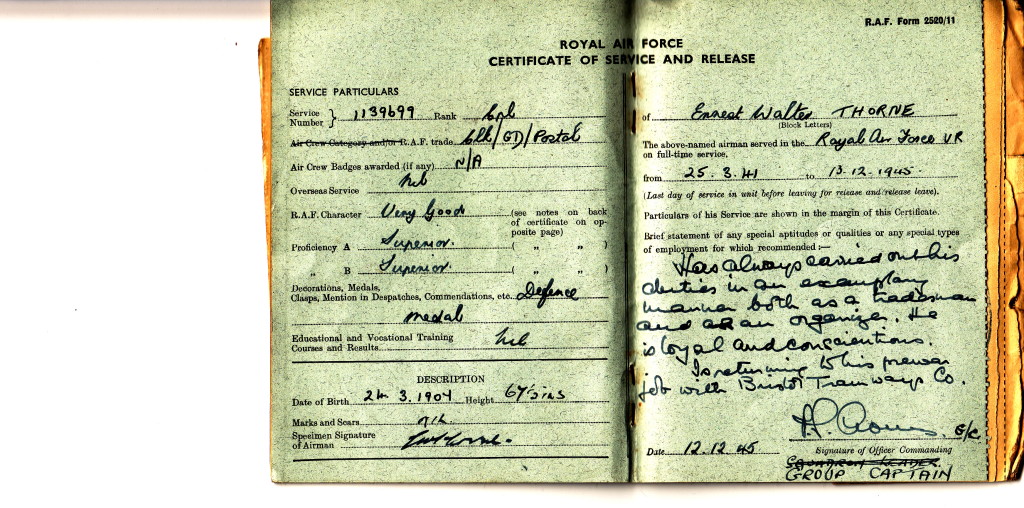 R.A.F. Form 2520/11
ROYAL AIR FORCE
CERTIFICATE OF SERVICE AND RELEASE
SERVICE PARTICULARS
Service Number } 1139699 Rank Cpl
Air Crew Category and/or R.A.F. trade Clk/GD/Postal
Air Crew Badges awarded (if any) N/A
Overseas Service Nil
R.A.F. Character Very Good (see notes on back
of certificate on op-
posite page)
Proficiency A Superior. ( „ „ )
„ B Superior. ( „ „ )
Decorations, Medals,
Clasps, Mention in Despatches, Commendations, etc. Defence
medal
Educational and Vocational Training
Courses and Results Nil
DESCRIPTION
Date of Birth 24.3.1904 Height 67½ins
Marks and Scars
Specimen Signature
of Airman
of Ernest Walter THORNE
(Block Letters)
The above-named airman served in the Royal Air Force VR
on full-time service,
from 25.3.41 to 13.12.1945.
(Last day of service in unit before leaving for release and release leave).
Particulars of his Service are shown in the margin of this Certificate.
Brief statement of any special aptitudes or qualities or any special types
of employment for which recommended:—
Has always carried out his
duties in an exemplary
manner both as a tradesman
and as an organizer. He
is loyal and conscientious.
Is returning to his prewar
job with Bristol Tramways Co.
G/C.
Date 12.12.45 Signature of Officer Commanding
SQUADRON LEADER
GROUP CAPTAIN